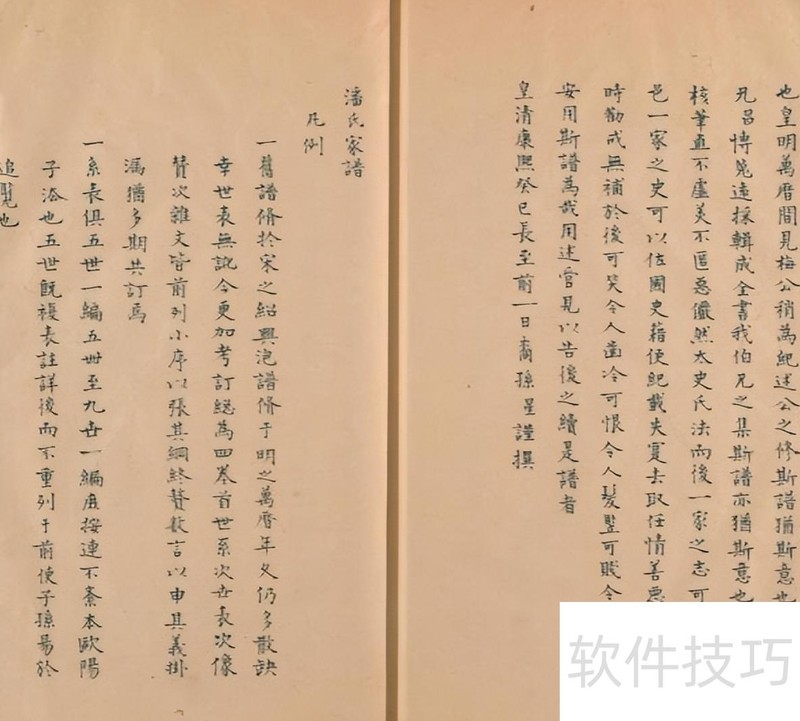 也皇明萬曆間見梅公稍為紀述公之修斯譜猶斯意也
凡昌博覧遠採輯成全書我伯兄之集斯譜亦猶斯意也
核筆直不虛美不匿惡儼然太史氏法而後一家之志可
邑一家之史可以佐國史藉使紀載失寔去取任情善惡
時勸戒無補於後可笑令人齒冷可恨令人髮豎可賤令
安用斯譜為哉用述管見以告後之續是譜者
皇清康熙癸巳長至前一日裔孫星謹撰
潘氏家譜
凡例
一舊譜脩於宋之紹興洎譜脩于明之萬曆年久仍多散缺
幸世表無訛今更加考訂總為四卷首世系次世表次像
贊次雜文皆前列小序以張其綱終贊數言以申其義掛
漏猶多期共訂焉
一系表俱五世一編五世至九世一編庶接連不紊本歐陽
子法也五世既複表註詳後而不重列于前使子孫易於
追覽也
软件技巧